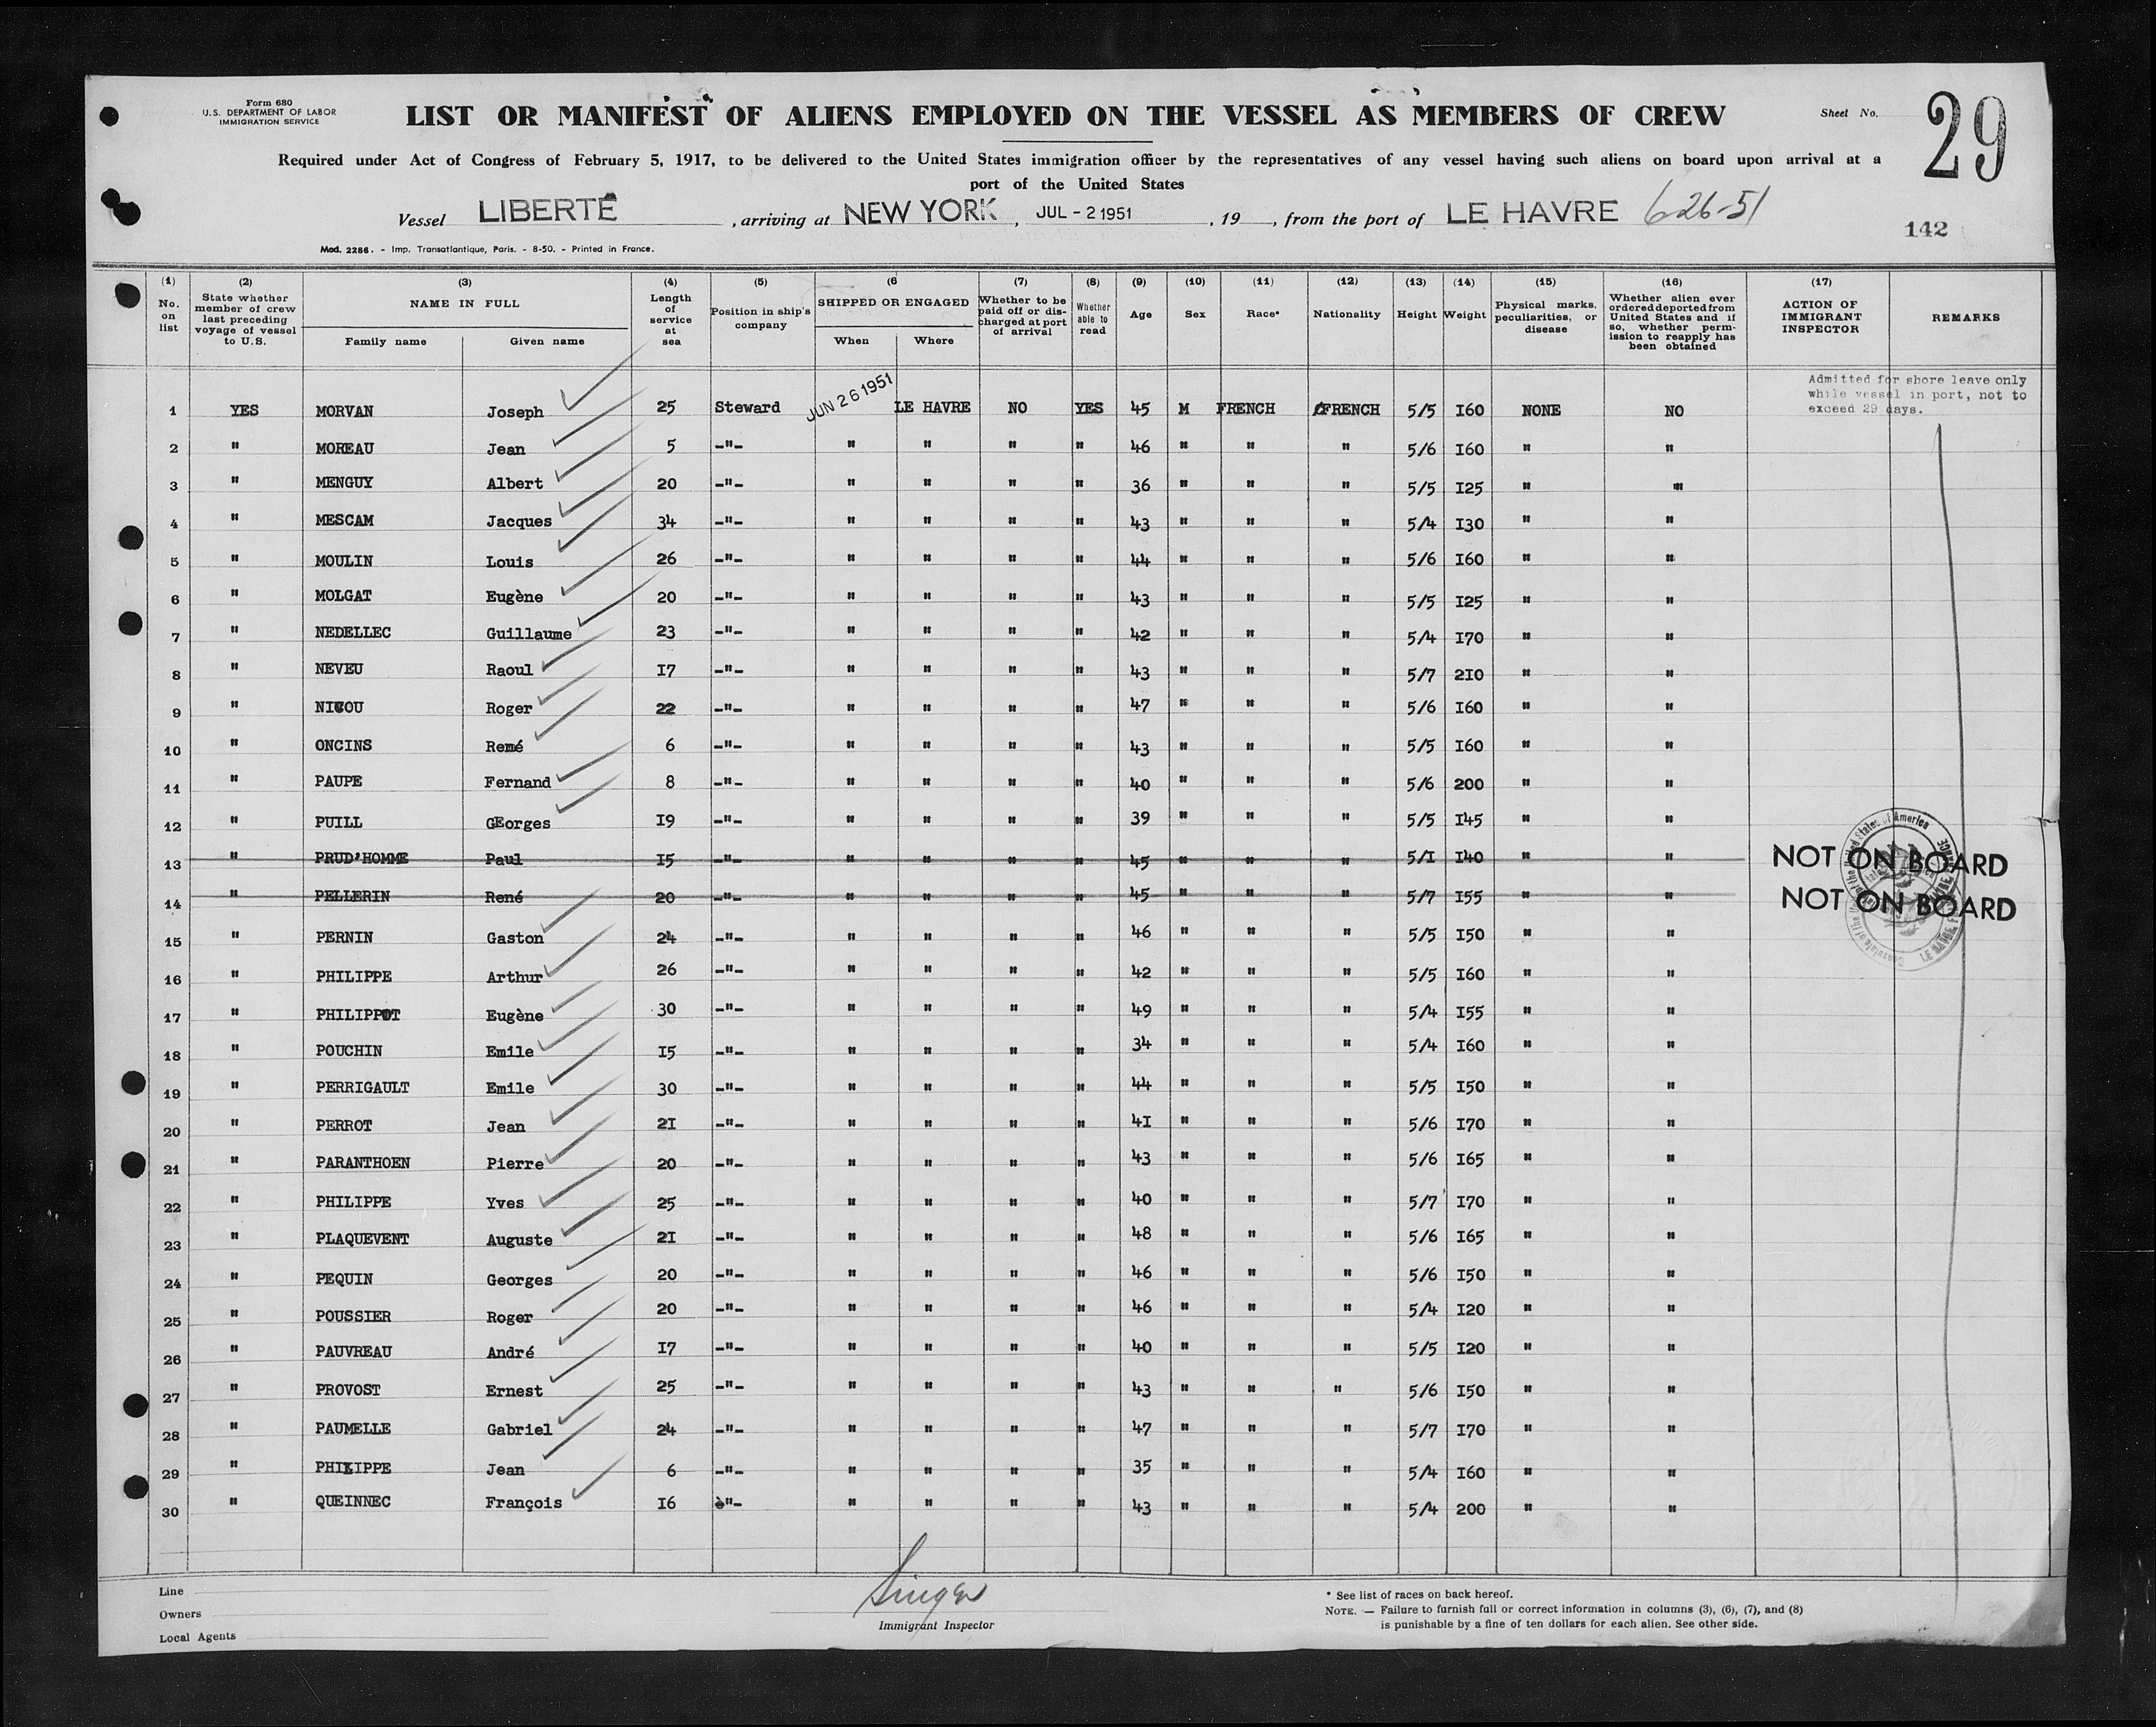 Form 680
U.S. DEPARTMENT OF LABOR
IMMIGRATION SERVICE
LIST OR MANIFEST OF ALIENS EMPLOYED ON THE VESSEL AS MEMBERS OF CREW
Sheet No. 29
Required under Act of Congress of February 5, 1917, to be delivered to the United States immigration officer by the representatives of any vessel having such aliens on board upon arrival at a
port of the United States
Vessel LIBERTÉ, arriving at NEW YORK, JUL - 2 1951, 19 , from the port of LE HAVRE 6-26-51
142
Mod. 2286. - Imp. Transatlantique, Paris. - 8-50. - Printed in France.
(1) No. on list (2) State whether member of crew last preceding voyage of vessel to U.S. (3) NAME IN FULL Family name Given name (4) Length of service at sea (5) Position in ship's company (6 SHIPPED OR ENGAGED When Where (7) Whether to be paid off or discharged at port of arrival (8) Whether able to read (9) Age (10) Sex (11) Race* (12) Nationality (13) Height (14) Weight (15) Physical marks, peculiarities, or disease (16) Whether alien ever ordered deported from United States and if so, whether permission to reapply has been obtained (17) ACTION OF IMMIGRANT INSPECTOR REMARKS
Admitted for shore leave only
while vessel in port, not to
exceed 29 days.
1 YES MORVAN Joseph 25 Steward JUN 26 1951 LE HAVRE NO YES 45 M FRENCH FRENCH 5/5 I60 NONE NO
2 " MOREAU Jean 5 -"- " " " " 46 " " " 5/6 I60 " "
3 " MENGUY Albert 20 -"- " " " " 36 " " " 5/5 I25 " "
4 " MESCAM Jacques 34 -"- " " " " 43 " " " 5/4 I30 " "
5 " MOULIN Louis 26 -"- " " " " 44 " " " 5/6 I60 " "
6 " MOLGAT Eugène 20 -"- " " " " 43 " " " 5/5 I25 " "
7 " NEDELLEC Guillaume 23 -"- " " " " 42 " " " 5/4 I70 " "
8 " NEVEU Raoul I7 -"- " " " " 43 " " " 5/7 2I0 " "
9 " NICOU Roger 22 -"- " " " " 47 " " " 5/6 I60 " "
10 " ONCINS René 6 -"- " " " " 43 " " " 5/5 I60 " "
11 " PAUPE Fernand 8 -"- " " " " 40 " " " 5/6 200 " "
12 " PUILL GEorges I9 -"- " " " " 39 " " " 5/5 I45 " "
13 " PRUD'HOMME Paul I5 -"- " " " " 45 " " " 5/I I40 " " NOT ON BOARD
14 " PELLERIN René 20 -"- " " " " 45 " " " 5/7 I55 " " NOT ON BOARD
15 " PERNIN Gaston 24 -"- " " " " 46 " " " 5/5 I50 " "
16 " PHILIPPE Arthur 26 -"- " " " " 42 " " " 5/5 I60 " "
17 " PHILIPPOT Eugène 30 -"- " " " " 49 " " " 5/4 I55 " "
18 " POUCHIN Emile I5 -"- " " " " 34 " " " 5/4 I60 " "
19 " PERRIGAULT Emile 30 -"- " " " " 44 " " " 5/5 I50 " "
20 " PERROT Jean 2I -"- " " " " 4I " " " 5/6 I70 " "
21 " PARANTHOEN Pierre 20 -"- " " " " 43 " " " 5/6 I65 " "
22 " PHILIPPE Yves 25 -"- " " " " 40 " " " 5/7 I70 " "
23 " PLAQUEVENT Auguste 2I -"- " " " " 48 " " " 5/6 I65 " "
24 " PEQUIN Georges 20 -"- " " " " 46 " " " 5/6 I50 " "
25 " POUSSIER Roger 20 -"- " " " " 46 " " " 5/4 I20 " "
26 " PAUVREAU André I7 -"- " " " " 40 " " " 5/5 I20 " "
27 " PROVOST Ernest 25 -"- " " " " 43 " " " 5/6 I50 " "
28 " PAUMELLE Gabriel 24 -"- " " " " 47 " " " 5/7 I70 " "
29 " PHILIPPE Jean 6 -"- " " " " 35 " " " 5/4 I60 " "
30 " QUEINNEC François I6 è"- " " " " 43 " " " 5/4 200 " "
Line
Owners
Local Agents
Singer
Immigrant Inspector
* See list of races on back hereof.
NOTE. — Failure to furnish full or correct information in columns (3), (6), (7), and (8)
is punishable by a fine of ten dollars for each alien. See other side.